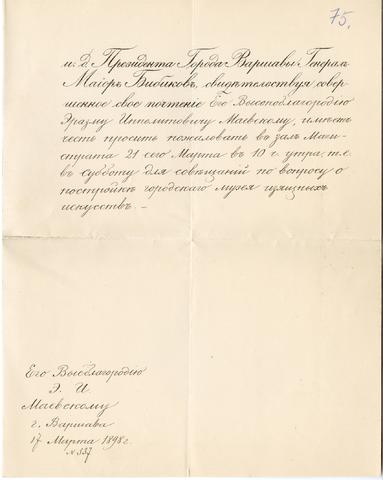 75.
и. д. Президента Города Варшавы Генерал
Маіоръ Бибиковъ, свидѣтельствуя совер-
шенное свое почтеніе Его Высокоблагородію
Эразму Ипполитовичу Маевскому, имѣетъ
честь просить пожаловать въ залъ Маги-
страта 21 сего Марта въ 10 ч. утра, т. е.
въ субботу для совѣщаній по вопросу о
постройкѣ городскаго музея изящныхъ
искусствъ. —
Его Высокоблагородію
Э. И.
Маевскому
г. Варшава
17 Марта 1898 г.
N 557